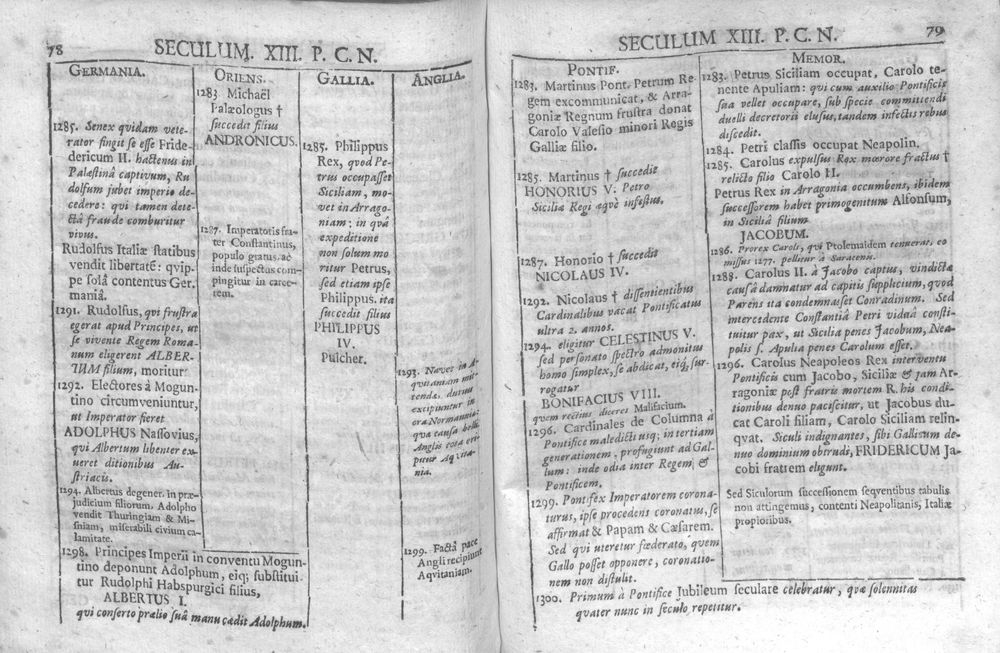 78
SECULUM. XIII. P. C. N.
GERMANIA.
1285. Senex quidam vete-
rator fingit se esse Fride-
dericum II. hactenus in
Palestinâ captivum, Ru
dolfum jubet imperio de-
cedere: qui tamen dete-
ctâ fraude comburitur
vivus.
Rudolfus Italiæ statibus
vendit libertatē: qvip-
pe solâ contentus Ger.
maniâ.
1291. Rudolfus, qvi frustra
egerat apud Principes, ut
se vivente Regem Roma-
num eligerent ALBER-
TUM filium, moritur
1292. Electores à Mogun-
tino circumveniuntur,
ut Imperator fieret
ADOLPHUS Nassovius,
qui Albertum libenter ex
ueret ditionibus Au-
striacis.
1294. Albertus degener. in præ-
judicium filiorum. Adolpho
vendit Thuringiam & Mi-
sniam, miserabili civium ca-
lamitate.
1298. Principes Imperii in conventu Mogun-
tino deponunt Adolphum, eiq; substitui-
tur Rudolphi Habspurgici filius,
ALBERTUS I.
qui conserto prælio suâ manu cædit Adolphum.
ORIENS.
1283 Michaël
Palæologus †
succedit filius
ANDRONICUS.
1287. Imperatoris fra-
ter Constantinus,
populo gratus, ac
inde suspectus com-
pingitur in carce-
rem.
GALLIA.
1285. Philippus
Rex, quod Pe-
trus occupasset
Siciliam, mo-
vet in Arrago-
niam: in quâ
expeditione
non solum mo
ritur Petrus,
sed etiam ipse
Philippus. ita
succedit filius
PHILIPPUS
IV.
Pulcher.
ANGLIA.
1293. Naves in A-
qvitaniam mit-
tendæ, durius
excipiuntur in
ora Normanniæ:
qua causa belli
Anglis eripitur
Aqvitania.
1299. Factâ pace
Angli recipiunt
Aqvitaniam.
79
SECULUM XIII. P. C. N.
PONTIF.
1283. Martinus Pont. Petrum Re-
gem excommunicat, & Arra-
goniæ Regnum frustra donat
Carolo Valesio minori Regis
Galliæ filio.
1285. Martinus † succedit
HONORIUS V. Petro
Siciliæ Regi æquè infestus,
1287. Honorio † succedit
NICOLAUS IV.
1292. Nicolaus † dissentientibus
Cardinalibus vacat Pontificatus
ultra 2. annos.
1294. eligitur CELESTINUS V.
sed personato spectro admonitus
homo simplex, se abdicat, eiq; sur-
rogatur
BONIFACIUS VIII.
quem rectius diceres Malificium.
1296. Cardinales de Columna à
Pontifice maledicti usq; in tertiam
generationem, profugiunt ad Gal-
lum: inde odia inter Regem &
Pontificem.
1299. Pontifex Imperatorem corona-
turus, ipse procedens coronatus, se
affirmat & Papam & Cæsarem.
Sed qui uteretur fœderato, quem
Gallo posset opponere, coronatio-
nem non distulit.
1300. Primum à Pontifice Jubileum seculare celebratur, quæ solennitas
quater nunc in seculo repetitur.
MEMOR.
1283. Petrus Siciliam occupat, Carolo te-
nente Apuliam: qui cum auxilio Pontificis
sua vellet occupare, sub specie committendi
duelli decretorii elusus, tandem infectis rebus
discedit.
1284. Petri classis occupat Neapolin.
1285. Carolus expulsus Rex mœrore fractus †
relicto filio Carolo II.
Petrus Rex in Arragonia occumbens, ibidem
successorem habet primogenitum Alfonsum,
in Siciliâ filium
JACOBUM.
1286. Prorex Caroli, qui Ptolemaidem tenuerat, eo
missus 1277. pellitur à Saracenis.
1288. Carolus II. à Jacobo captus, vindictæ
causâ damnatur ad capitis supplicium, quod
Parens ita condemnasset Conradinum. Sed
intercedente Constantiâ Petri viduâ consti-
tuitur pax, ut Sicilia penes Jacobum, Nea-
polis s. Apulia penes Carolum esset.
1296. Carolus Neapoleos Rex interventu
Pontificis cum Jacobo, Siciliæ & jam Ar-
ragoniæ post fratris mortem R. his condi-
tionibus denuo paciscitur, ut Jacobus du-
cat Caroli filiam, Carolo Siciliam relin-
qvat. Siculi indignantes, sibi Gallorum de-
nuo dominium obtrudi, FRIDERICUM Ja-
cobi frattem eligunt.
Sed Siculorum successionem seqventibus tabulis
non attingemus, contenti Neapolitanis, Italiæ
propioribus.